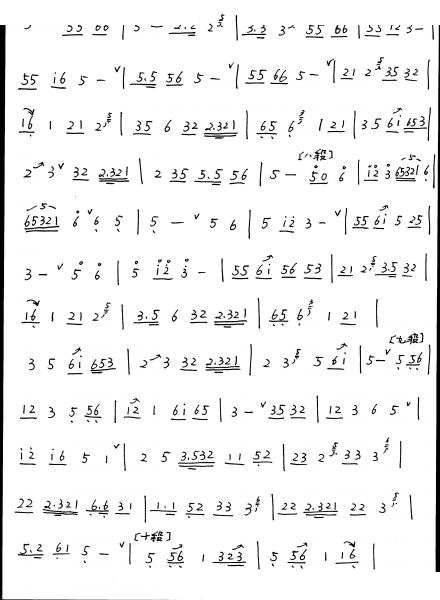 5 - 2.2 2 | 3.3 3 55 66 | 55 12 3 - |
55 i6 5 - ∨ | 5.5 56 5 - ∨ | 55 66 5 - ∨ | 21 2 35 32 |
16 1 21 2 | 35 6 32 2.321 | 65 6 1 21 | 3 5 6i 653 |
2 3 ∨ 32 2.321 | 2 35 5.5 56 | 5 - [八殺] 50 6 | i2 3 65321 6 |
65321 6 ∨ 6 5 | 5 - ∨ 5 6 | 5 i2 3 - ∨ | 55 6i 5 25 |
3 - ∨ 5 6 | 5 i2 3 - | 55 6i 56 53 | 21 2 3.5 32 |
16 1 21 2 | 3.5 6 32 2.321 | 65 6 1 21 |
3 5 6i 653 | 2 3 32 2.321 | 2 3 5 6i | 5 - ∨ [九殺] 5 56 |
12 3 5 56 | 12 1 6i 65 | 3 - ∨ 35 32 | 12 3 6 5 ∨ |
i2 i6 5 1 ∨ | 2 5 3.532 11 52 | 23 2 33 3 |
22 2.321 6.6 31 | 1.1 52 33 3 | 22 2.321 22 3 |
5.2 61 5 - ∨ | [十殺] 5 56 1 323 | 5 56 1 16 |